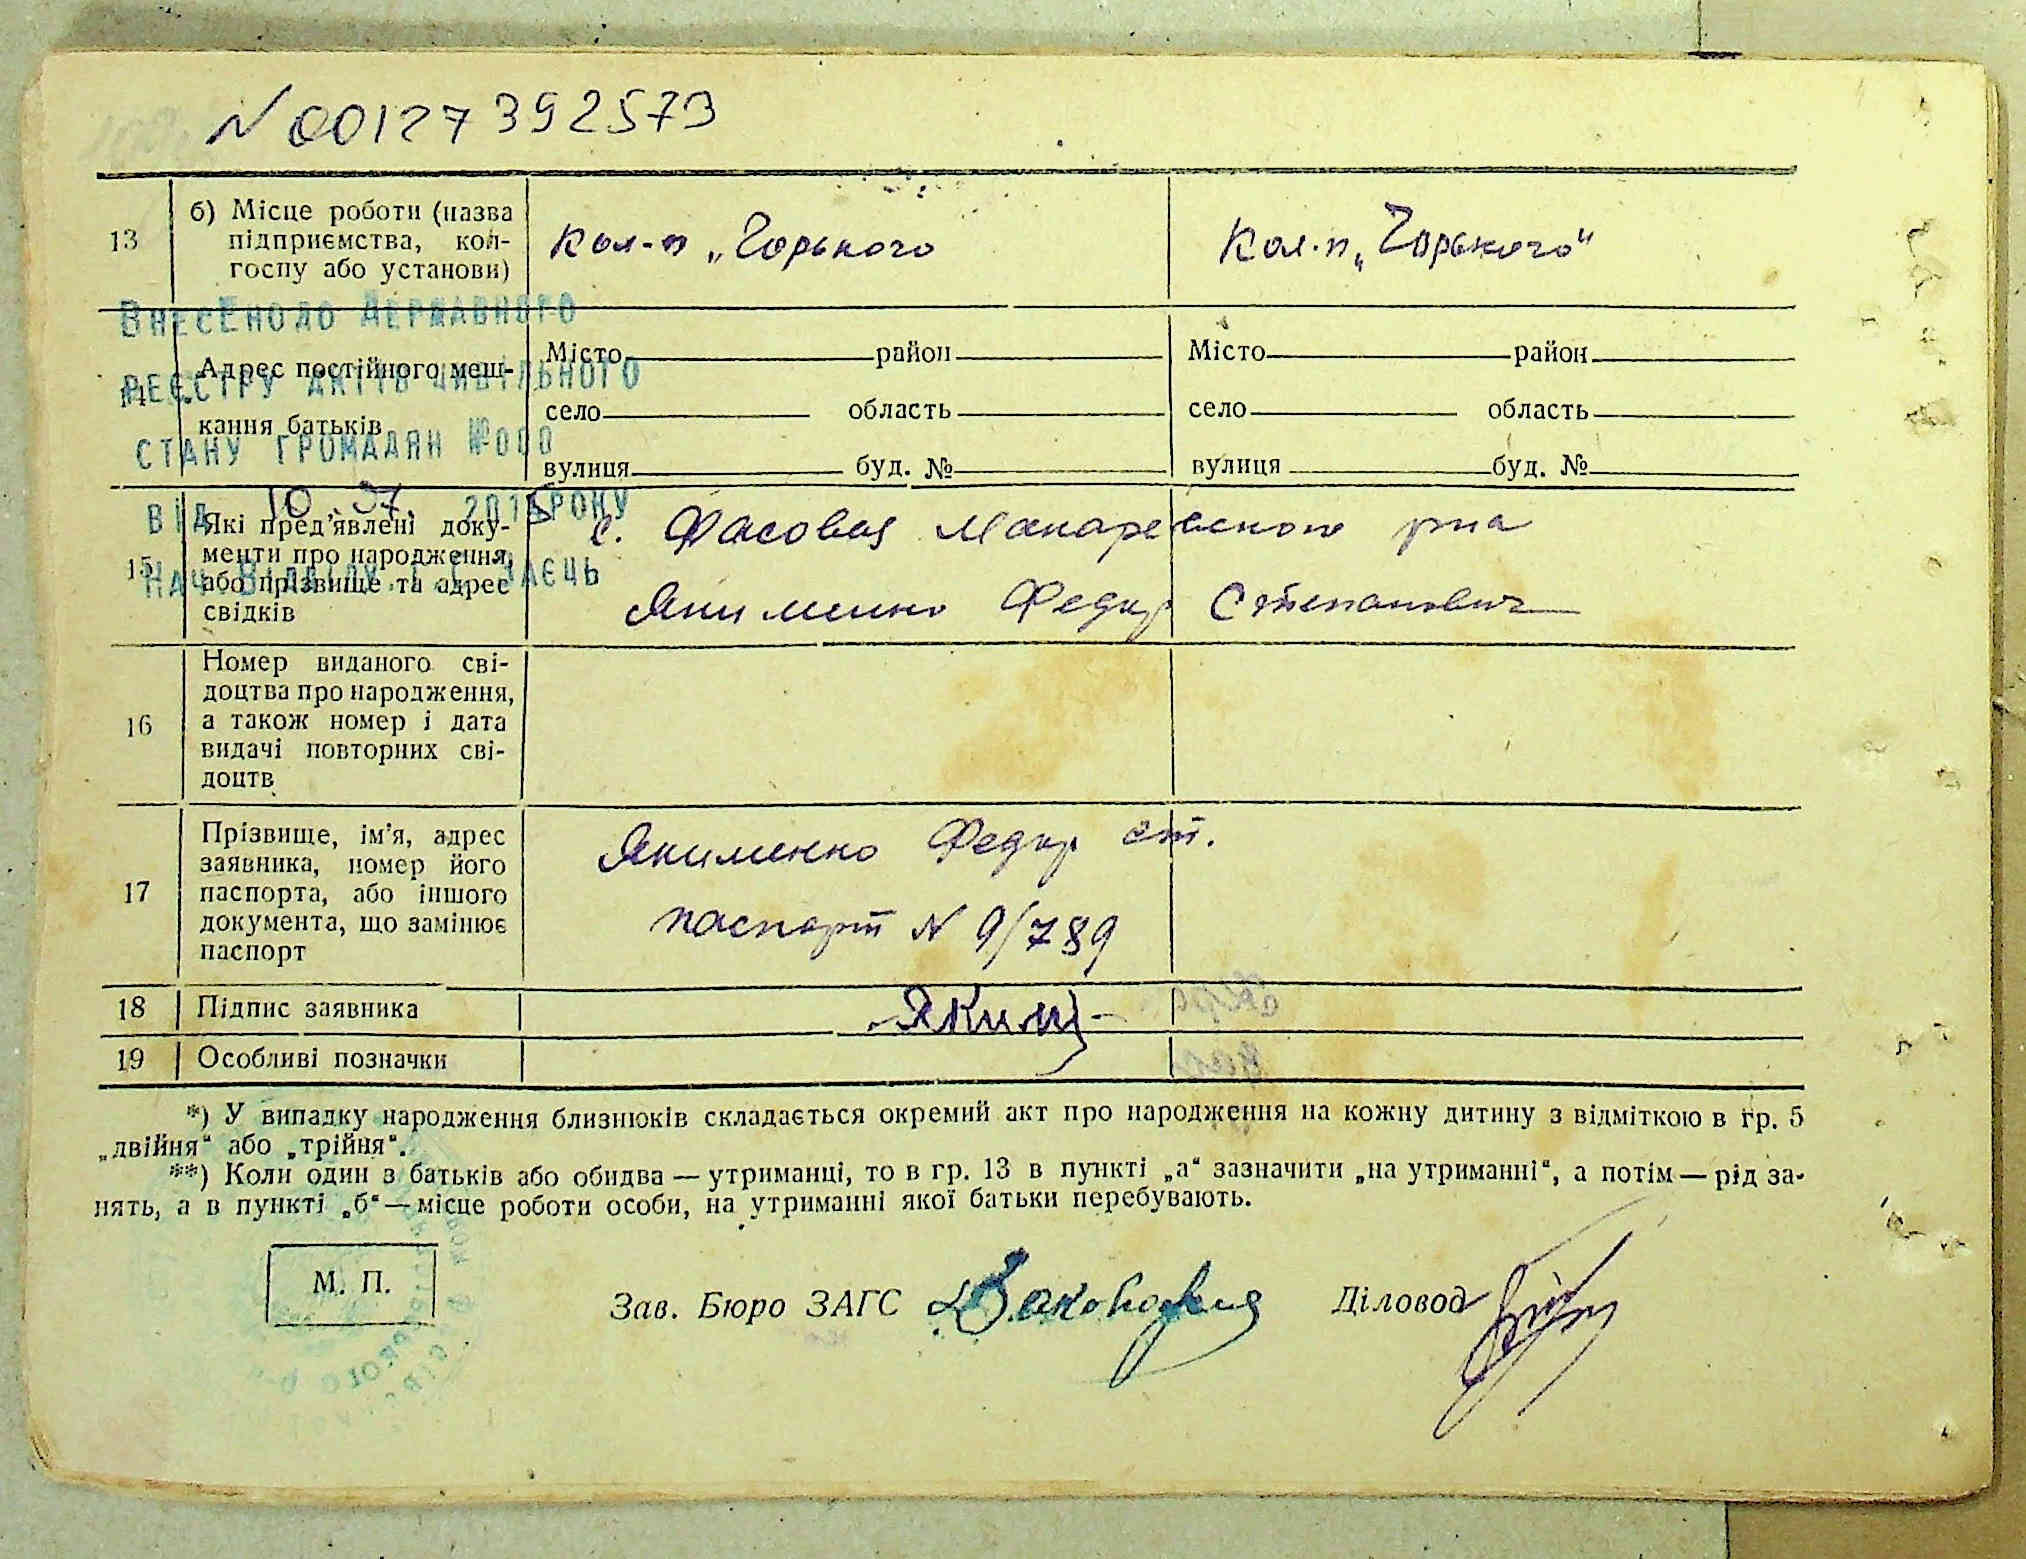 N 00127392573
13
б) Місце роботи (назва
підприємства, кол-
госпу або установи)
Кол-п „Горького
Кол-п „Горького"
Внесено до Державного
реєстру актів цивільного
стану громадян №000
від 10. 2015 року
Нач. відділу Заєць
14
Адрес постійного меш-
кання батьків
Місто район
село область
вулиця буд. №
Місто район
село область
вулиця буд. №
15
Які пред'явлені доку-
менти про народження,
або прізвище та адрес
свідків
с. Фасовая Макаровского рна
Якименко Федор Степанович
16
Номер виданого сві-
доцтва про народження,
а також номер і дата
видачі повторних сві-
доцтв
17
Прізвище, ім'я, адрес
заявника, номер його
паспорта, або іншого
документа, що замінює
паспорт
Якименко Федор Ст.
паспорт N 9/789
18
Підпис заявника
Яким
19
Особливі позначки
*) У випадку народження близнюків складається окремий акт про народження на кожну дитину з відміткою в гр. 5
„двійня" або „трійня".
**) Коли один з батьків або обидва — утриманці, то в гр. 13 в пункті „а" зазначити „на утриманні", а потім — рід за-
нять, а в пункті „б" — місце роботи особи, на утриманні якої батьки перебувають.
М. П.
Зав. Бюро ЗАГС
Діловод